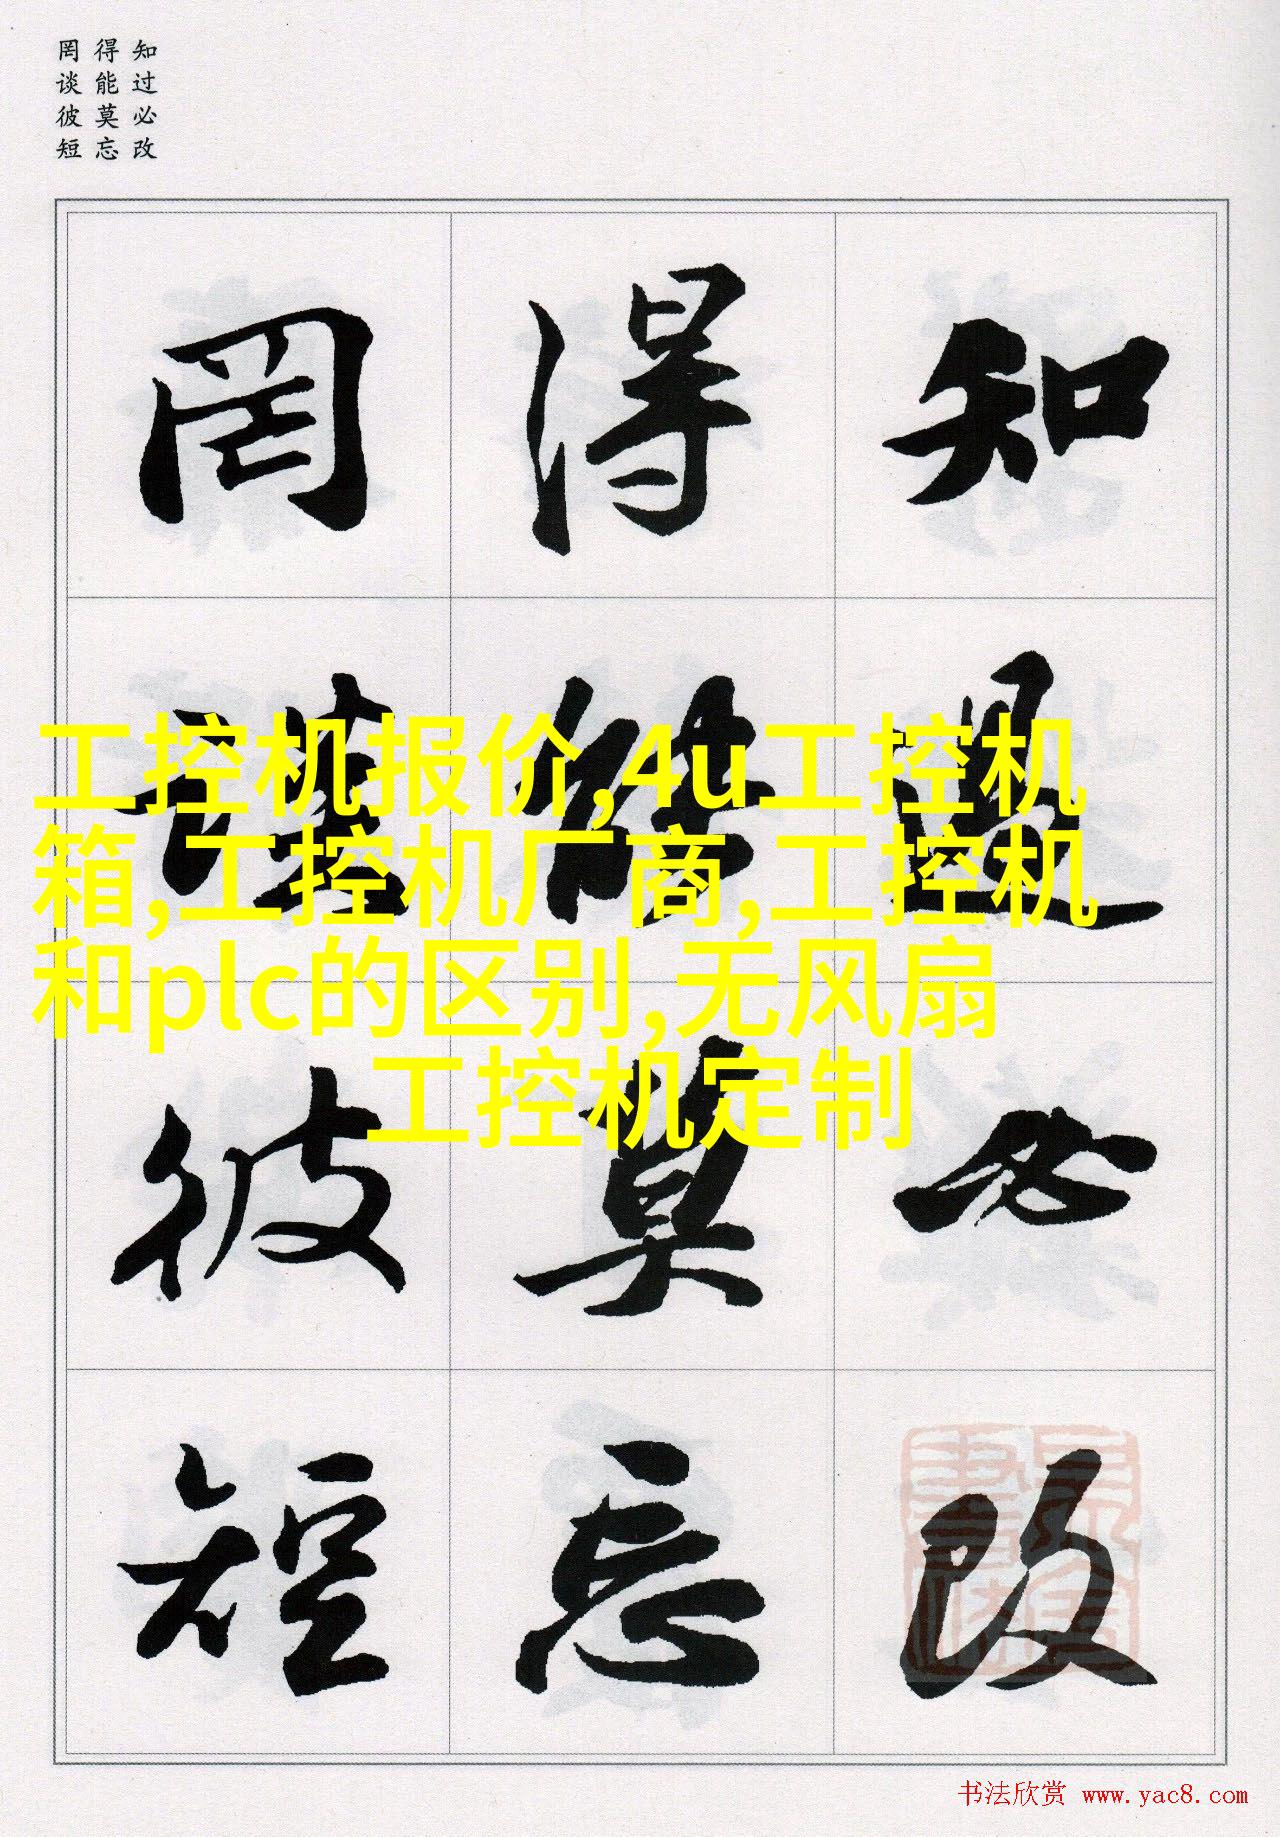 知过必改
得能莫忘
罔谈彼短
知过必改
得能莫忘
罔谈彼短
工控机报价,4u工控机
箱,工控机厂商,工控机
和plc的区别,无风扇
工控机定制
书法欣赏 www.yac8.com